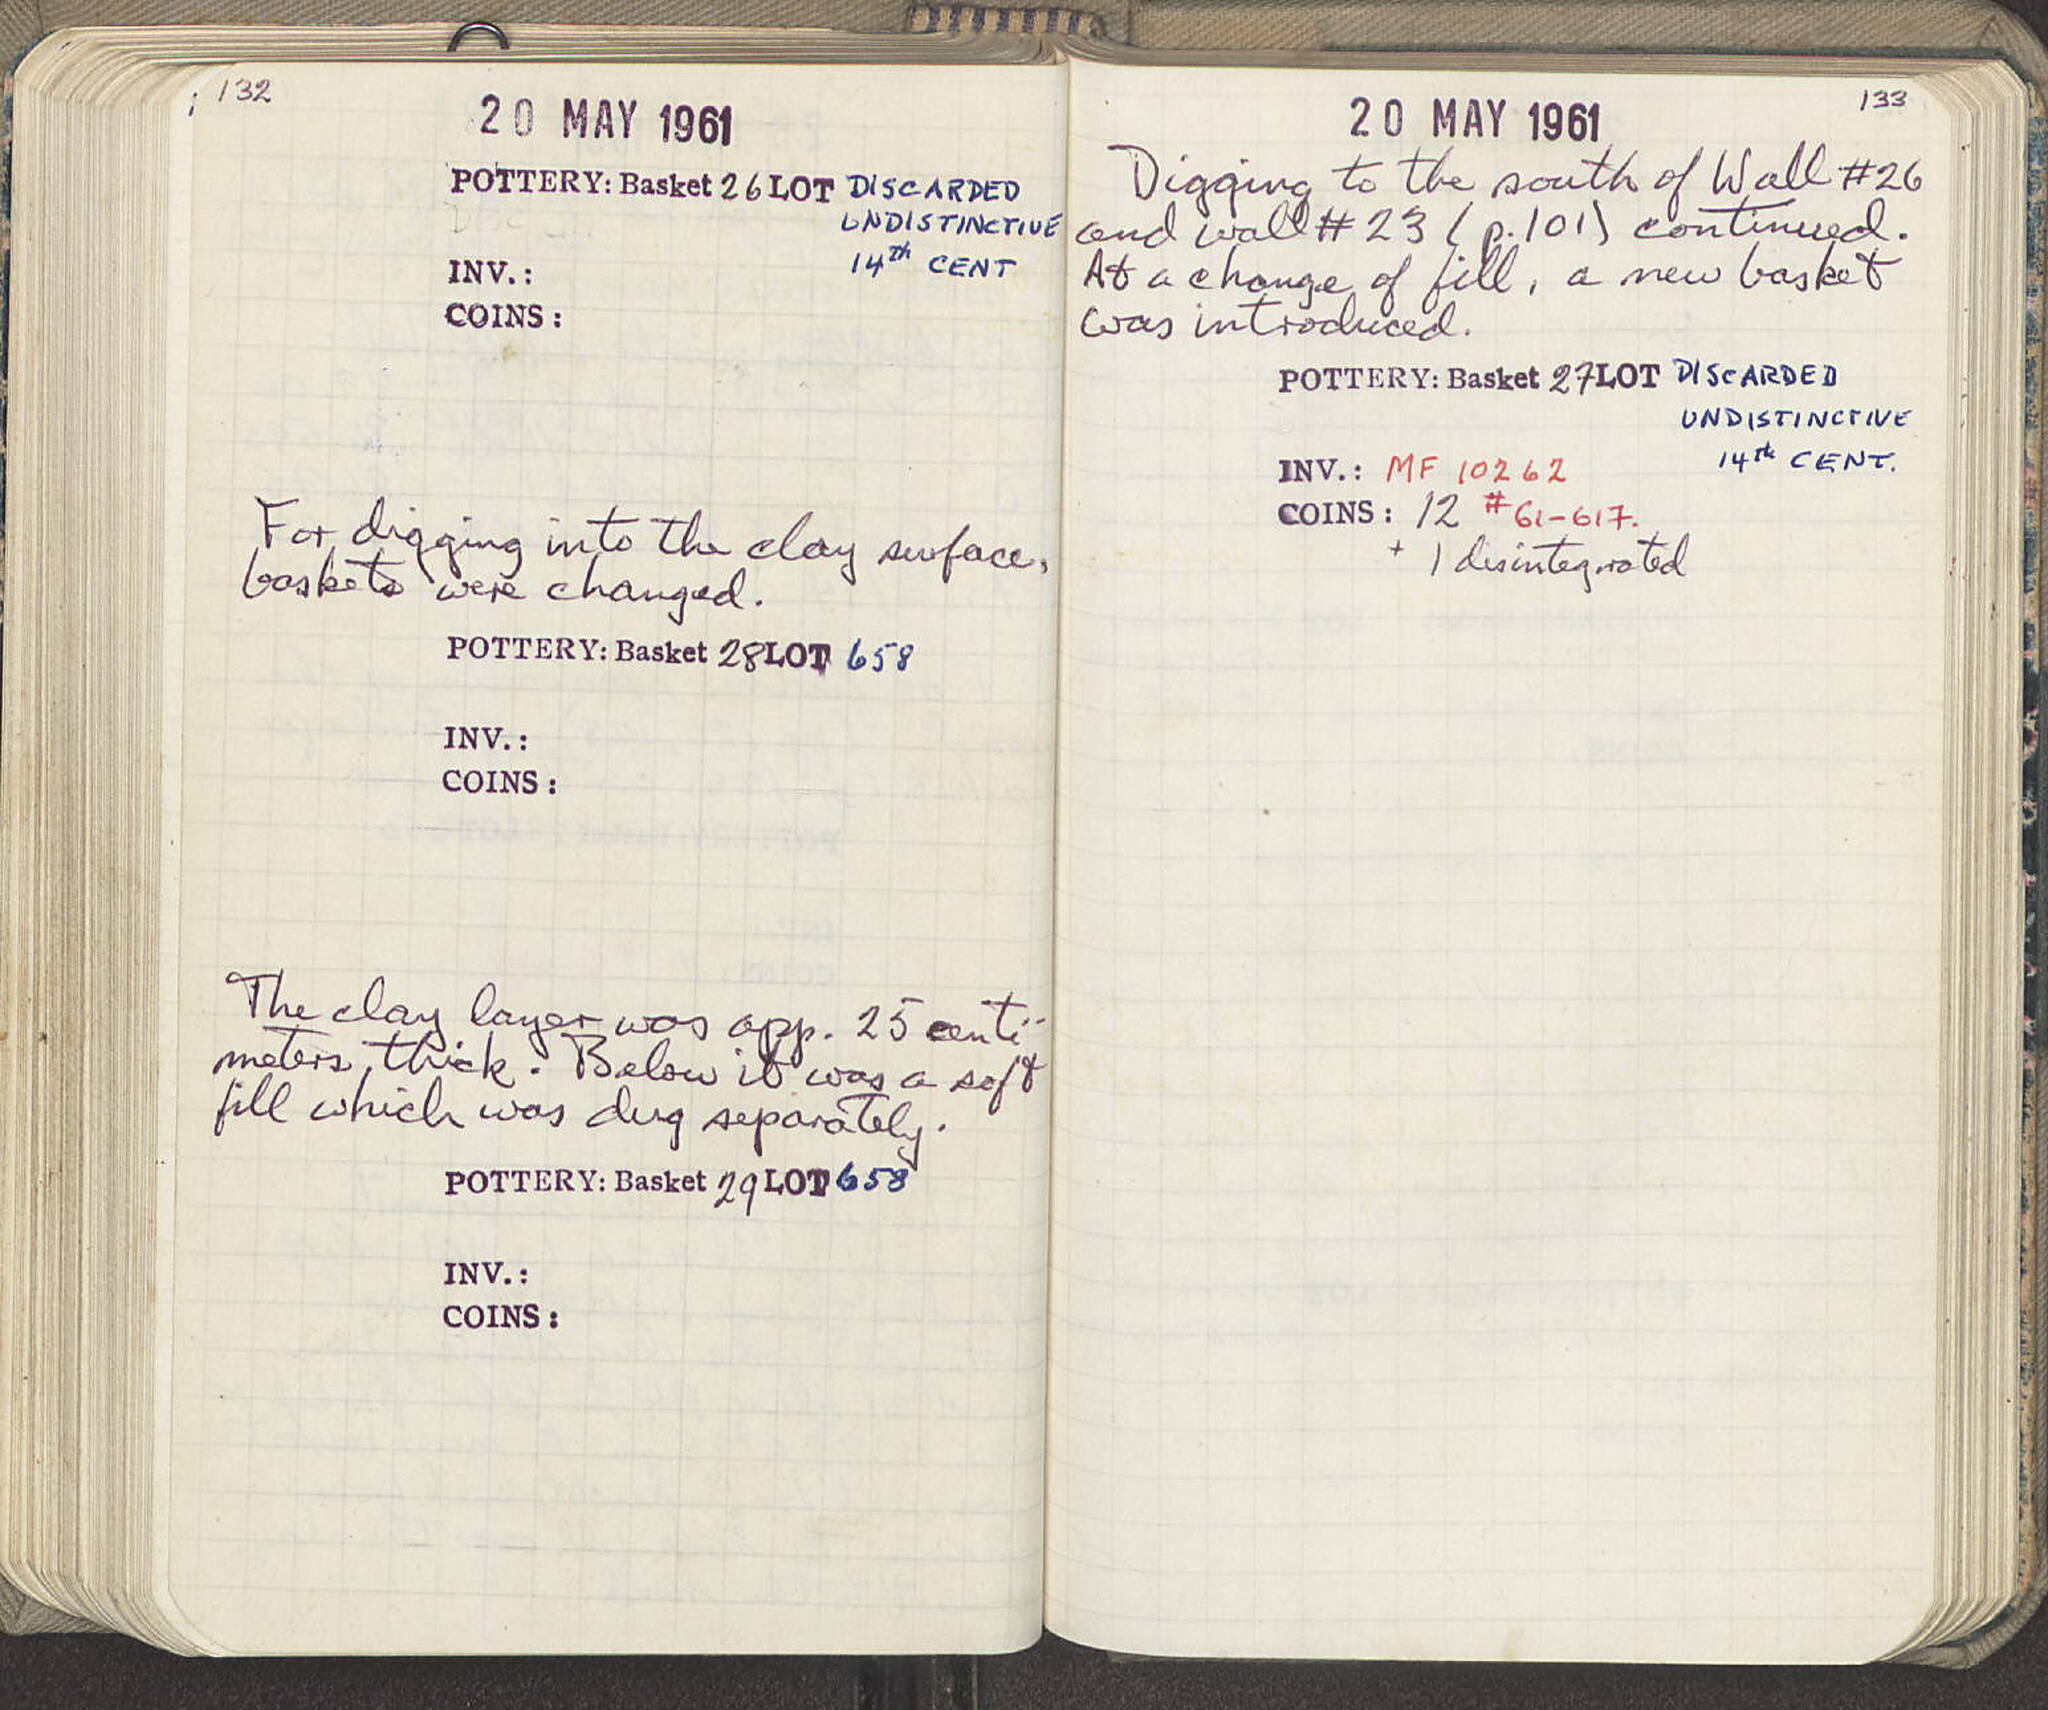 132
20 MAY 1961
POTTERY: Basket 26 LOT DISCARDED
UNDISTINCTIVE
14th CENT
INV.:
COINS:
For digging into the clay surface,
baskets were changed.
POTTERY: Basket 28 LOT 658
INV.:
COINS:
The clay layer was app. 25 centi-
meters thick. Below it was a soft
fill which was dug separately.
POTTERY: Basket 29 LOT 658
INV.:
COINS:
133
20 MAY 1961
Digging to the south of Wall #26
and wall #23 (p.101) continued.
At a change of fill, a new basket
was introduced.
POTTERY: Basket 27 LOT DISCARDED
UNDISTINCTIVE
14th CENT.
INV.: MF 10262
COINS: 12 #61-617.
+ 1 disintegrated